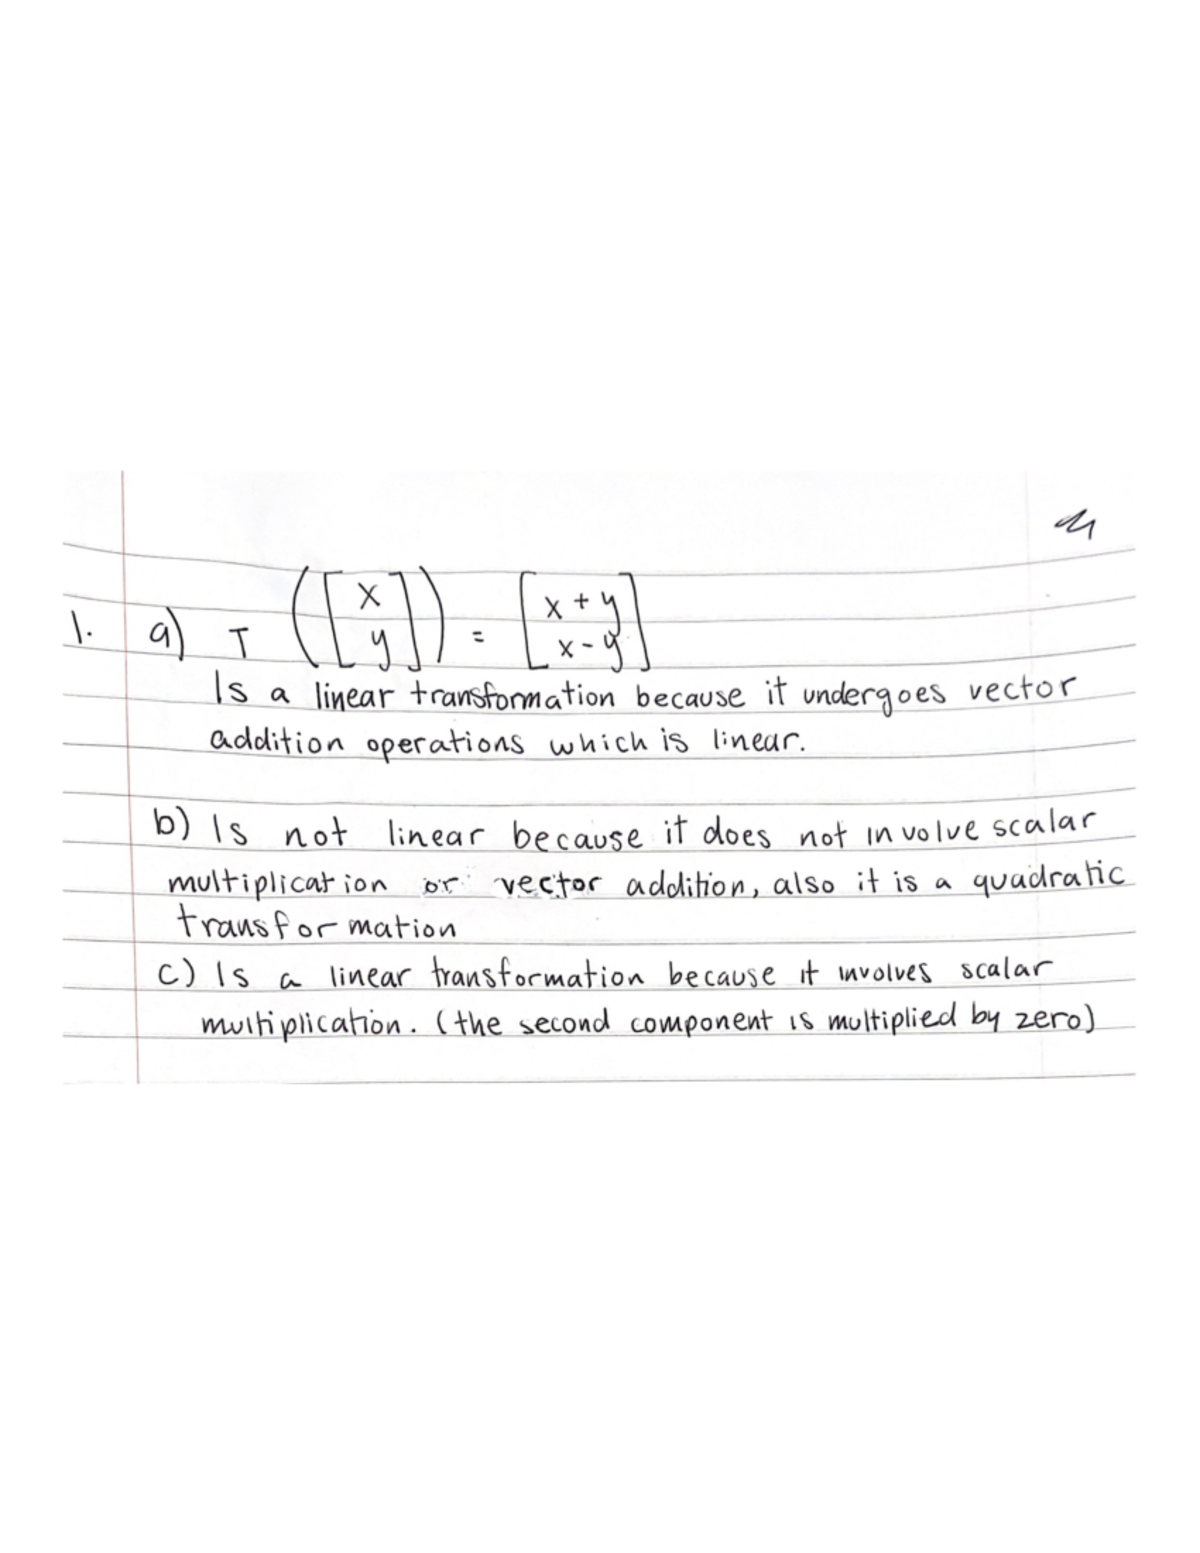 1. a) T ([x y]) = [x + y x - y]
Is a linear transformation because it undergoes vector
addition operations which is linear.
b) Is not linear because it does not involve scalar
multiplication or vector addition, also it is a quadratic
transformation
c) Is a linear transformation because it involves scalar
multiplication. (the second component is multiplied by zero)